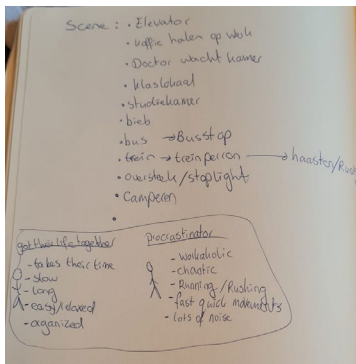 Scene : • Elevator
• koffie halen op werk
• Doctor wacht kamer
• klaslokaal
• studiekamer
• bieb
• bus → Busstop
• trein → treinperron → haasten/
• oversteek/stoplight
• Camperen
•
got their life together
- takes their time
- slow
- long
- easy/relaxed
- organized
procrastinator
- workaholic
- chaotic
- Running/Rushing
- fast quick movements
- lots of noise